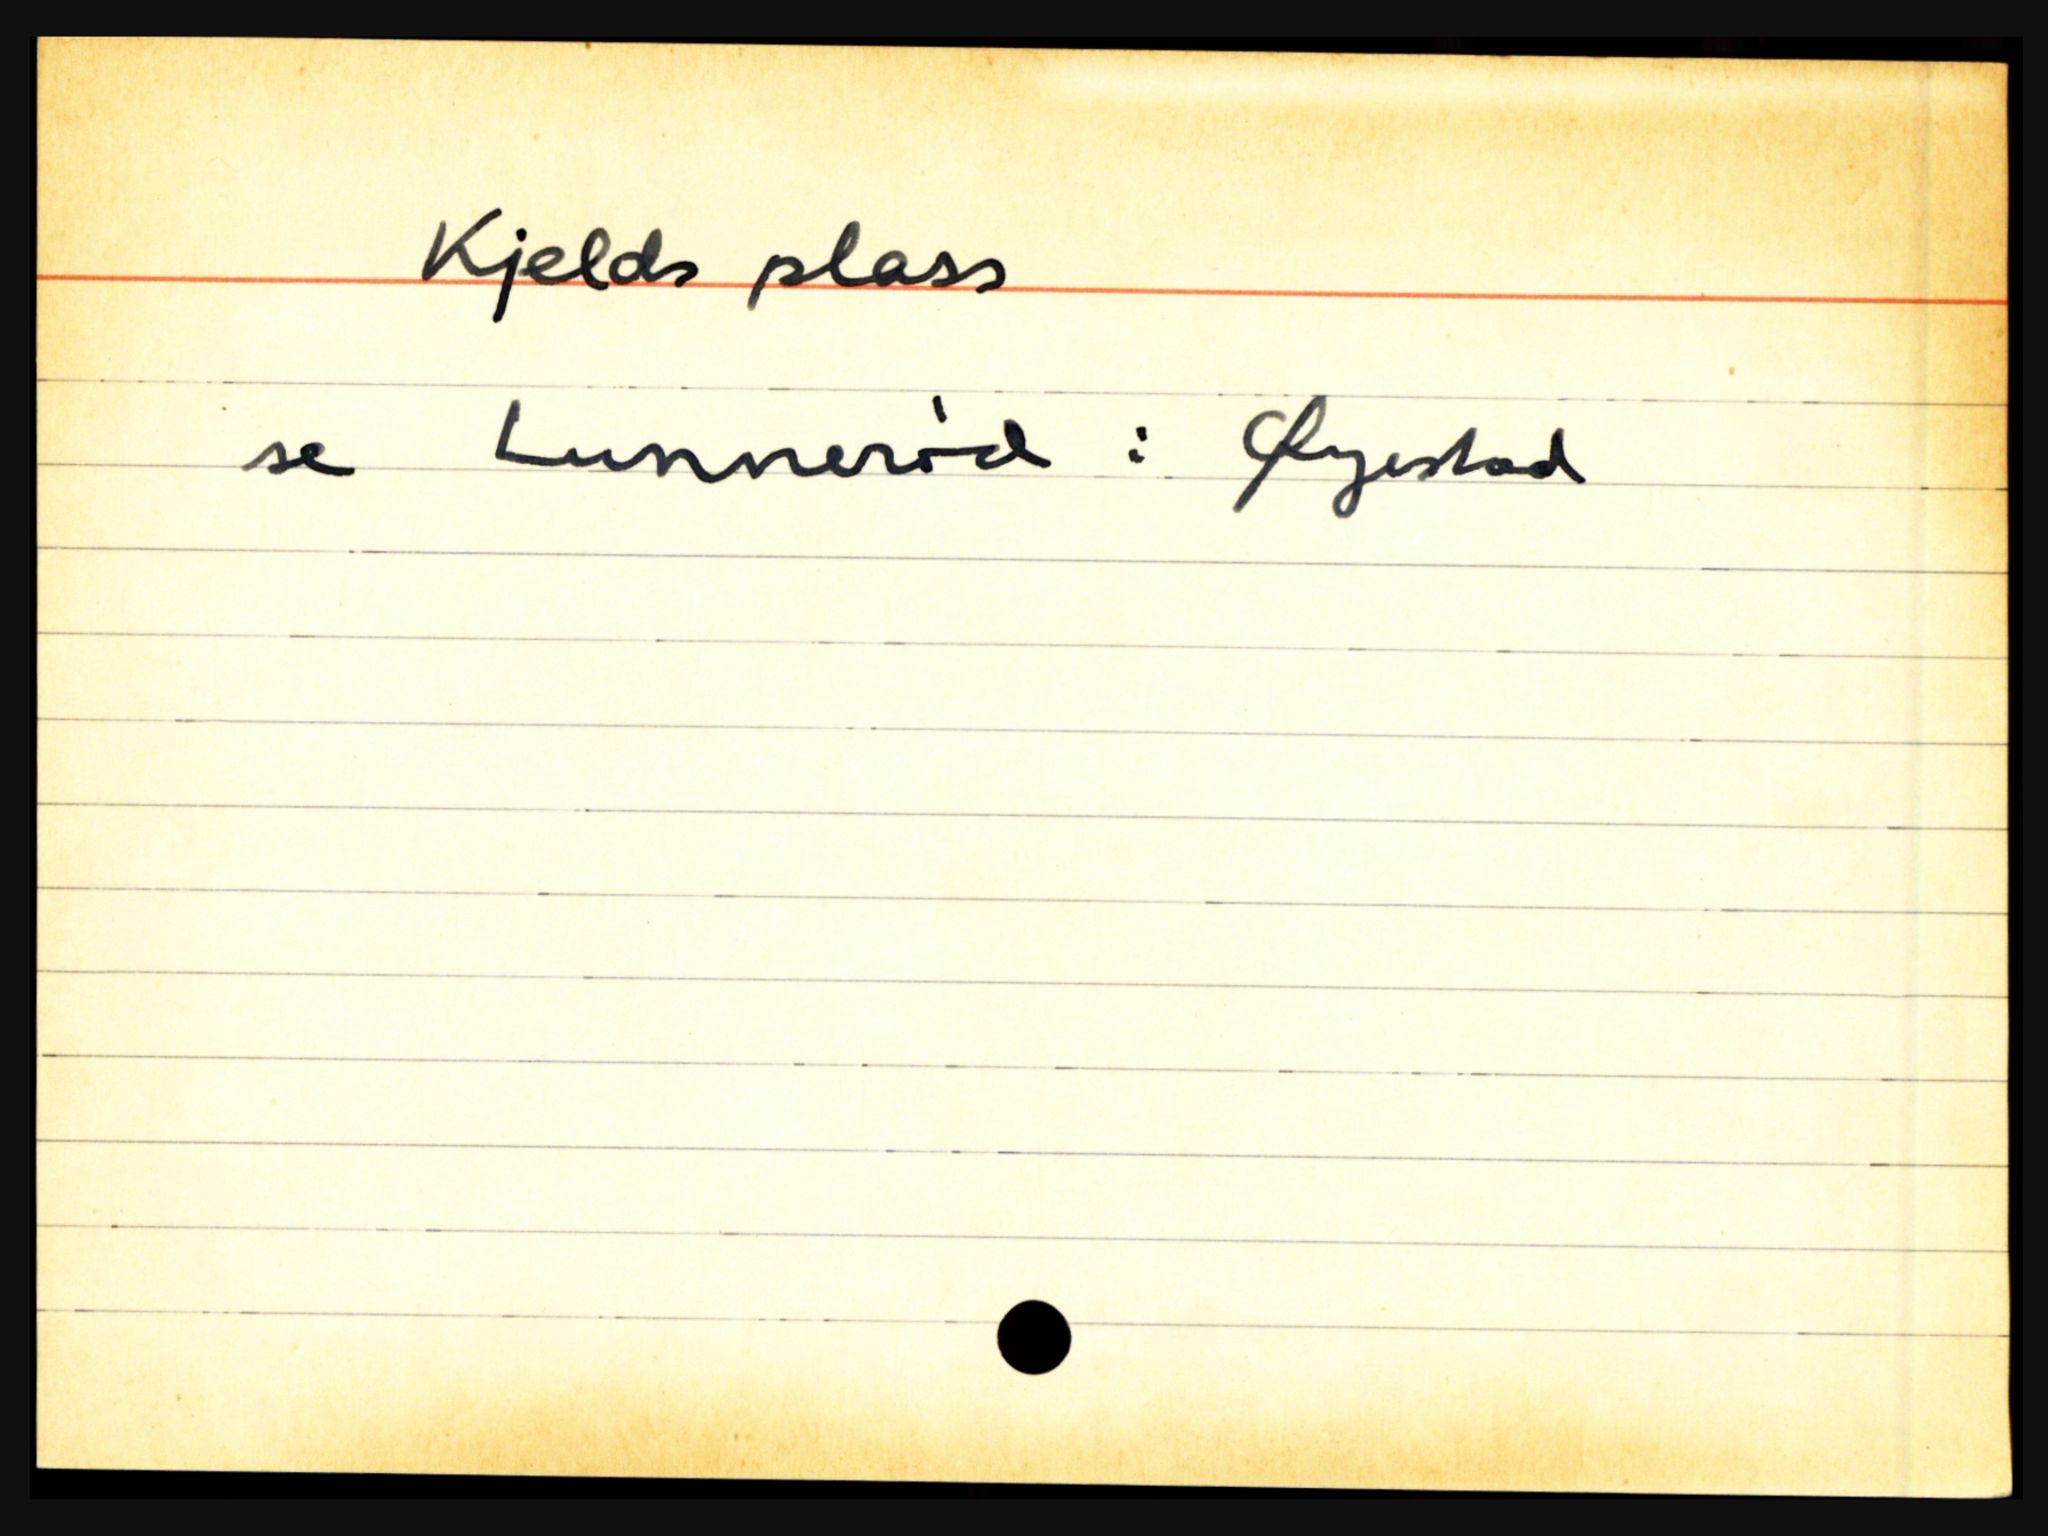 Kjelds plass
se Lunnerød i Øyestad